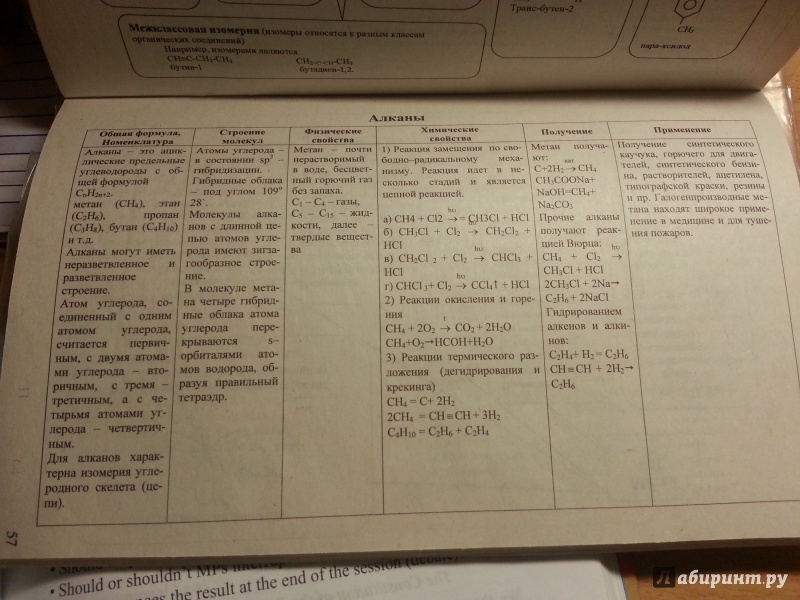 Транс-бутен-2
CH₃
пара-ксилол
Межклассовая изомерия (изомеры относятся к разным классам
органических соединений)
Например, изомерами являются
бутин-1
бутадиен-1,2.
Алканы
Общая формула,
Номенклатура
Алканы – это ацик-
лические предельные
углеводороды с об-
щей формулой
CₙH₂ₙ₊₂.
метан (CH₄), этан
(C₂H₆), пропан
(C₃H₈), бутан (C₄H₁₀)
и т.д.
Алканы могут иметь
неразветвленное и
разветвленное
строение.
Атом углерода, со-
единенный с одним
атомом углерода,
считается первич-
ным, с двумя атома-
ми углерода – вто-
ричным, с тремя –
третичным, а с че-
тырьмя атомами уг-
лерода – четвертич-
ным.
Для алканов харак-
терна изомерия угле-
родного скелета (це-
пи).
Строение
молекул
Атомы углерода –
в состоянии sp³ –
гибридизации.
Гибридные облака
– под углом 109º
28`.
Молекулы алка-
нов с длинной це-
пью атомов угле-
рода имеют зигза-
гообразное строе-
ние.
В молекуле мета-
на четыре гибрид-
ные облака атома
углерода пере-
крываются s–
орбиталями ато-
мов водорода, об-
разуя правильный
тетраэдр.
Физические
свойства
Метан – почти
нерастворимый
в воде, бесцвет-
ный горючий газ
без запаха.
C₁ – C₄ – газы,
C₅ – C₁₅ – жид-
кости, далее –
твердые вещест-
ва
Химические
свойства
1) Реакция замещения по сво-
бодно–радикальному меха-
низму. Реакция идет в не-
сколько стадий и является
цепной реакцией.
hυ
а) CH4 + Cl2 →= CH3Cl + HCl
hυ
б) CH₃Cl + Cl₂ → CH₂Cl₂ +
HCl
hυ
в) CH₂Cl ₂ + Cl₂ → CHCl₃ +
HCl
hυ
г) CHCl ₃+ Cl₂ → CCl₄↑ + HCl
2) Реакции окисления и горе-
ния
t
CH₄ + 2O₂ → CO₂ + 2H₂O
CH₄+O₂→HCOH+H₂O
3) Реакции термического раз-
ложения (дегидрирования и
крекинга)
CH₄ = C+ 2H₂
2CH₄ = CH≡CH + 3H₂
C₄H₁₀ = C₂H₆ + C₂H₄
Получение
Метан получа-
ют:
кат
C+2H₂ → CH₄
CH₃COONa+
NaOH=CH₄+
Na₂CO₃
Прочие алканы
получают реак-
цией Вюрца:
hυ
CH₄ + Cl₂ →
CH₃Cl + HCl
2CH₃Cl + 2Na→
C₂H₆ + 2NaCl
Гидрированием
алкенов и алки-
нов:
C₂H₄+ H₂ = C₂H₆
CH≡CH + 2H₂→
C₂H₆
Применение
Получение синтетического
каучука, горючего для двига-
телей, синтетического бензи-
на, растворителей, ацетилена,
типографской краски, резины
и пр. Галогенпроизводные ме-
тана находят широкое приме-
нение в медицине и для туше-
ния пожаров.
57
• Should or shouldn't MPs
the result at the end of the session
Лабиринт.ру